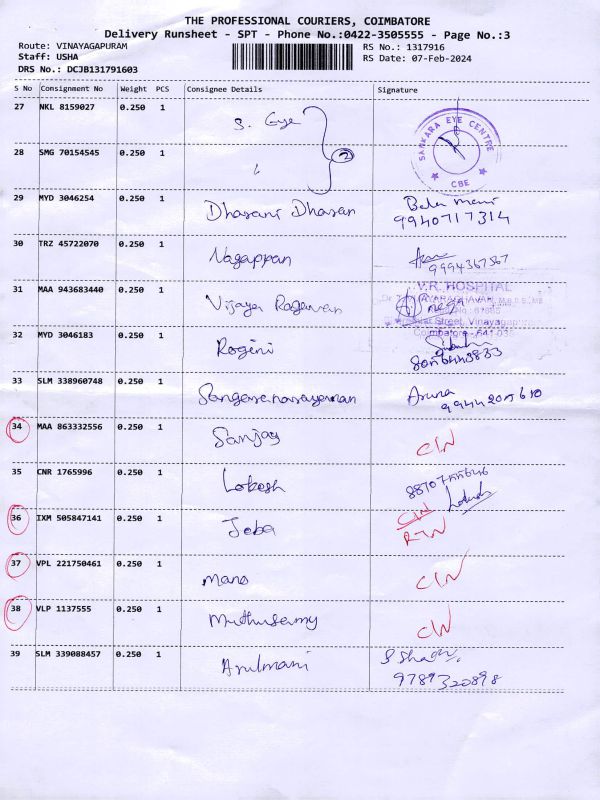 THE PROFESSIONAL COURIERS, COIMBATORE
Delivery Runsheet - SPT - Phone No.:0422-3505555 - Page No.:3
Route: VINAYAGAPURAM
RS No.: 1317916
Staff: USHA
RS Date: 07-Feb-2024
DRS No.: DCJB131791603
S No Consignment No Weight PCS Consignee Details Signature
27 NKL 8159027 0.250 1 S. Eye
SANKARA EYE CENTRE
CBE
28 SMG 70154545 0.250 1 2
29 MYD 3046254 0.250 1 Dharani Dharan Bala mani
9940717314
30 TRZ 45722070 0.250 1 Nagappan
9994367567
31 MAA 943683440 0.250 1 Vijaya Ragavan
V.R. HOSPITAL
32 MYD 3046183 0.250 1 Rogini
33 SLM 338960748 0.250 1 Sangaranarayanan Aruna
34 MAA 863332556 0.250 1 Sanjay CIN
35 CNR 1765996 0.250 1 Lokesh
36 IXM 505847141 0.250 1 Joba CIN
37 VPL 221750461 0.250 1 Mano CIN
38 VLP 1137555 0.250 1 Muthusamy CIN
39 SLM 339088457 0.250 1 Arulmani
9789320898